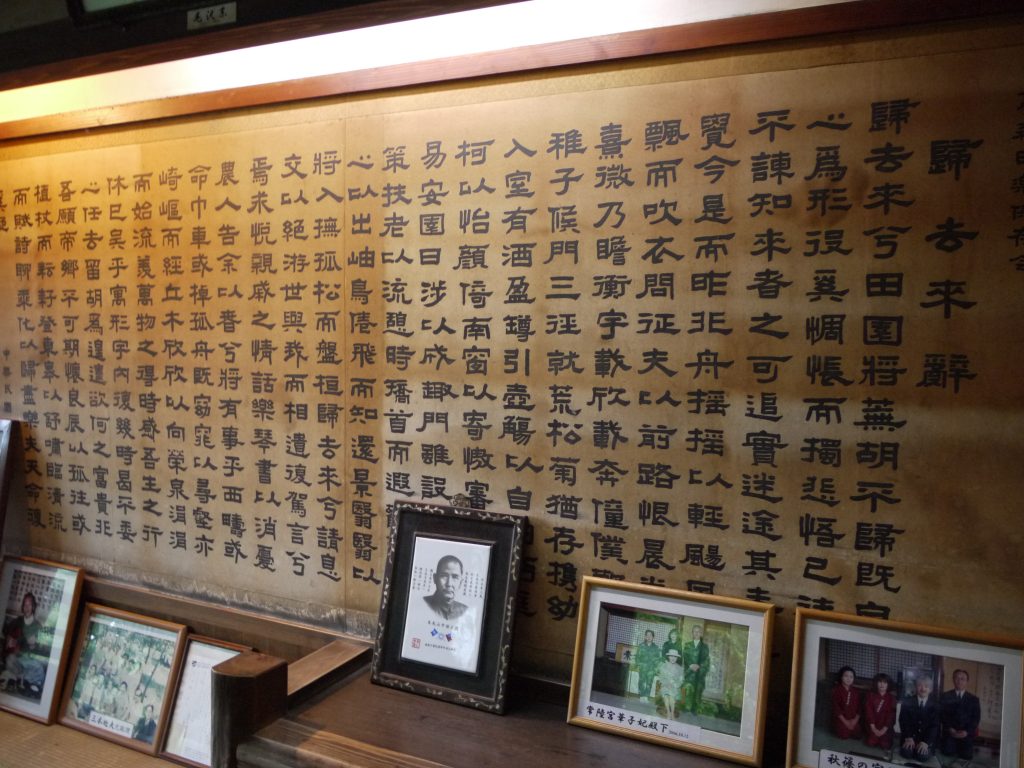 毛沢東
歸去來辭
歸去來兮田園將蕪胡不歸既自
心爲形役奚惆悵而獨悲悟已往
不諫知來者之可追實迷途其未
覺今是而昨非舟摇摇以輕颺風
飄而吹衣問征夫以前路恨晨光
熹微乃瞻衡宇載欣載奔僮僕歡
稚子候門三徑就荒松菊猶存攜幼
入室有酒盈罇引壺觴以自
柯以怡顏倚南窗以寄慠審
易安園日涉以成趣門雖設
策扶老以流憩時矯首而遐
心以出岫鳥倦飛而知還景翳翳以
將入撫孤松而盤桓歸去來兮請息
交以絕游世與我而相遺復駕言兮
焉求悅親戚之情話樂琴書以消憂
農人告余以春兮將有事乎西疇或
命巾車或棹孤舟既窈窕以尋壑亦
崎嶇而經丘木欣欣以向榮泉涓涓
而始流羨萬物之得時感吾生之行
休已矣乎寓形宇內復幾時曷不委
心任去留胡爲遑遑欲何之富貴非
吾願帝鄉不可期懷良辰以孤往或
植杖而耘耔登東皋以舒嘯臨清流
而賦詩聊乘化以歸盡樂夫天命復
奚疑
中華民國
常陸宮華子妃殿下
秋篠の宮